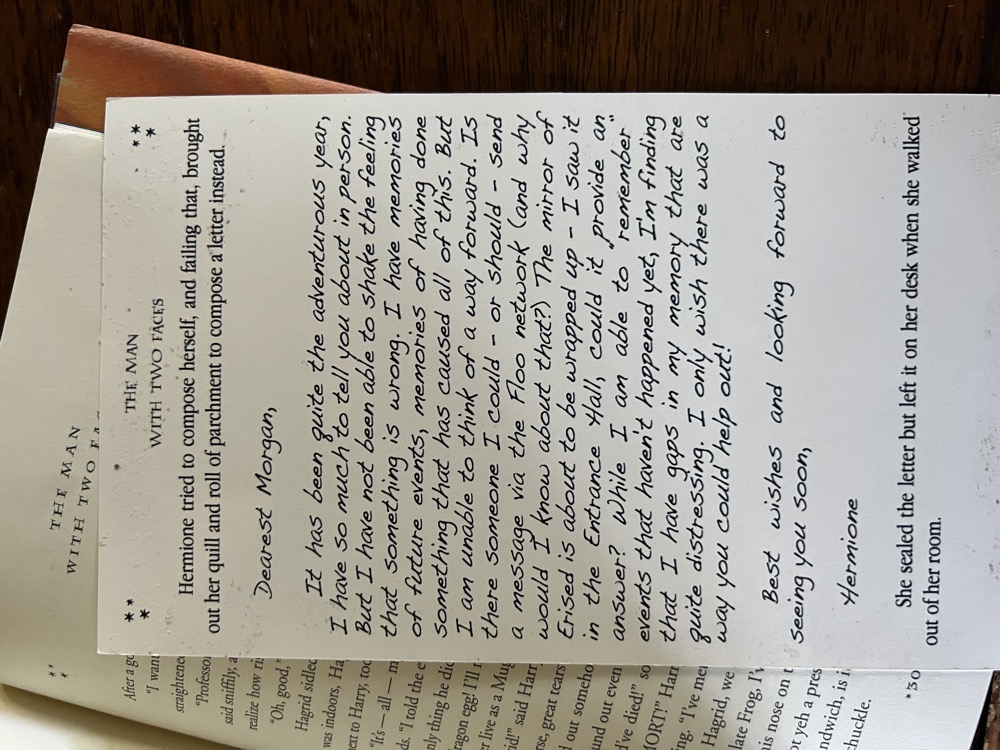 THE MAN
WITH TWO FA
THE MAN
WITH TWO FACES
Hermione tried to compose herself, and failing that, brought
out her quill and roll of parchment to compose a letter instead.
Dearest Morgan,
It has been quite the adventurous year,
I have so much to tell you about in person.
But I have not been able to shake the feeling
that something is wrong. I have memories
of future events, memories of having done
something that has caused all of this. But
I am unable to think of a way forward. Is
there someone I could - or should - send
a message via the Floo network (and why
would I know about that?) The mirror of
Erised is about to be wrapped up - I saw it
in the Entrance Hall, could it provide an
answer? While I am able to "remember"
events that haven't happened yet, I'm finding
that I have gaps in my memory that are
quite distressing. I only wish there was a
way you could help out!
Best wishes and looking forward to
seeing you soon,
Hermione
She sealed the letter but left it on her desk when she walked
out of her room.
After a go
"I want
straightene
"Professor
said sniffily, a
realize how ri
"Oh, good,"
Hagrid sidled
was indoors, Ha
ext to Harry, too
"It's — all — m
ds. "I told the e
nly thing he did
ragon egg! I'll
er live as a Mug
id!" said Harr
rse, great tears
d out someho
und out even
d've died!" so
MORT!" Harr
ing. "I've me
Hagrid, we
late Frog, I'v
is nose on t
rt yeh a pres
dwich, is i
huckle."
*30